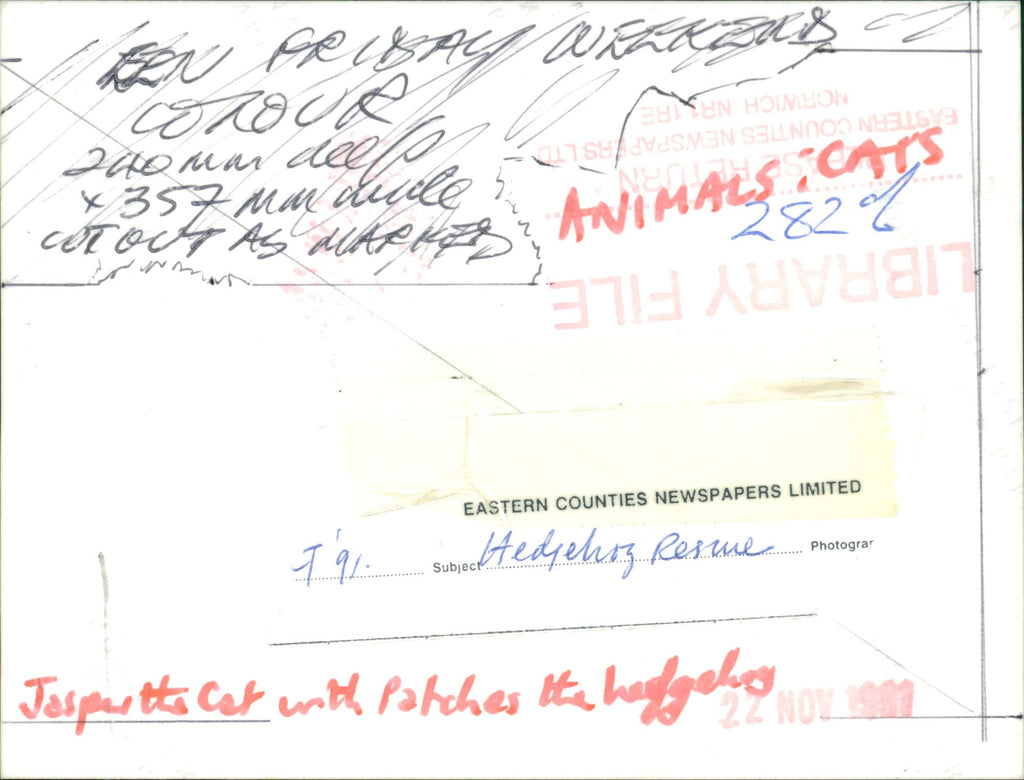 EEN FRIDAY WEEKENDER
COLOUR
240 mm deep
x 357 mm wide
CUT OUT AS MARKED
LIBRARY FILE
PLEASE RETURN
EASTERN COUNTIES NEWSPAPERS LTD
NORWICH NR1 1RE
ANIMALS: CATS
EASTERN COUNTIES NEWSPAPERS LIMITED
'91. Subject Hedgehog Rescue Photograr
Jasper the Cat with Patches the hedgehog
22 NOV 1991